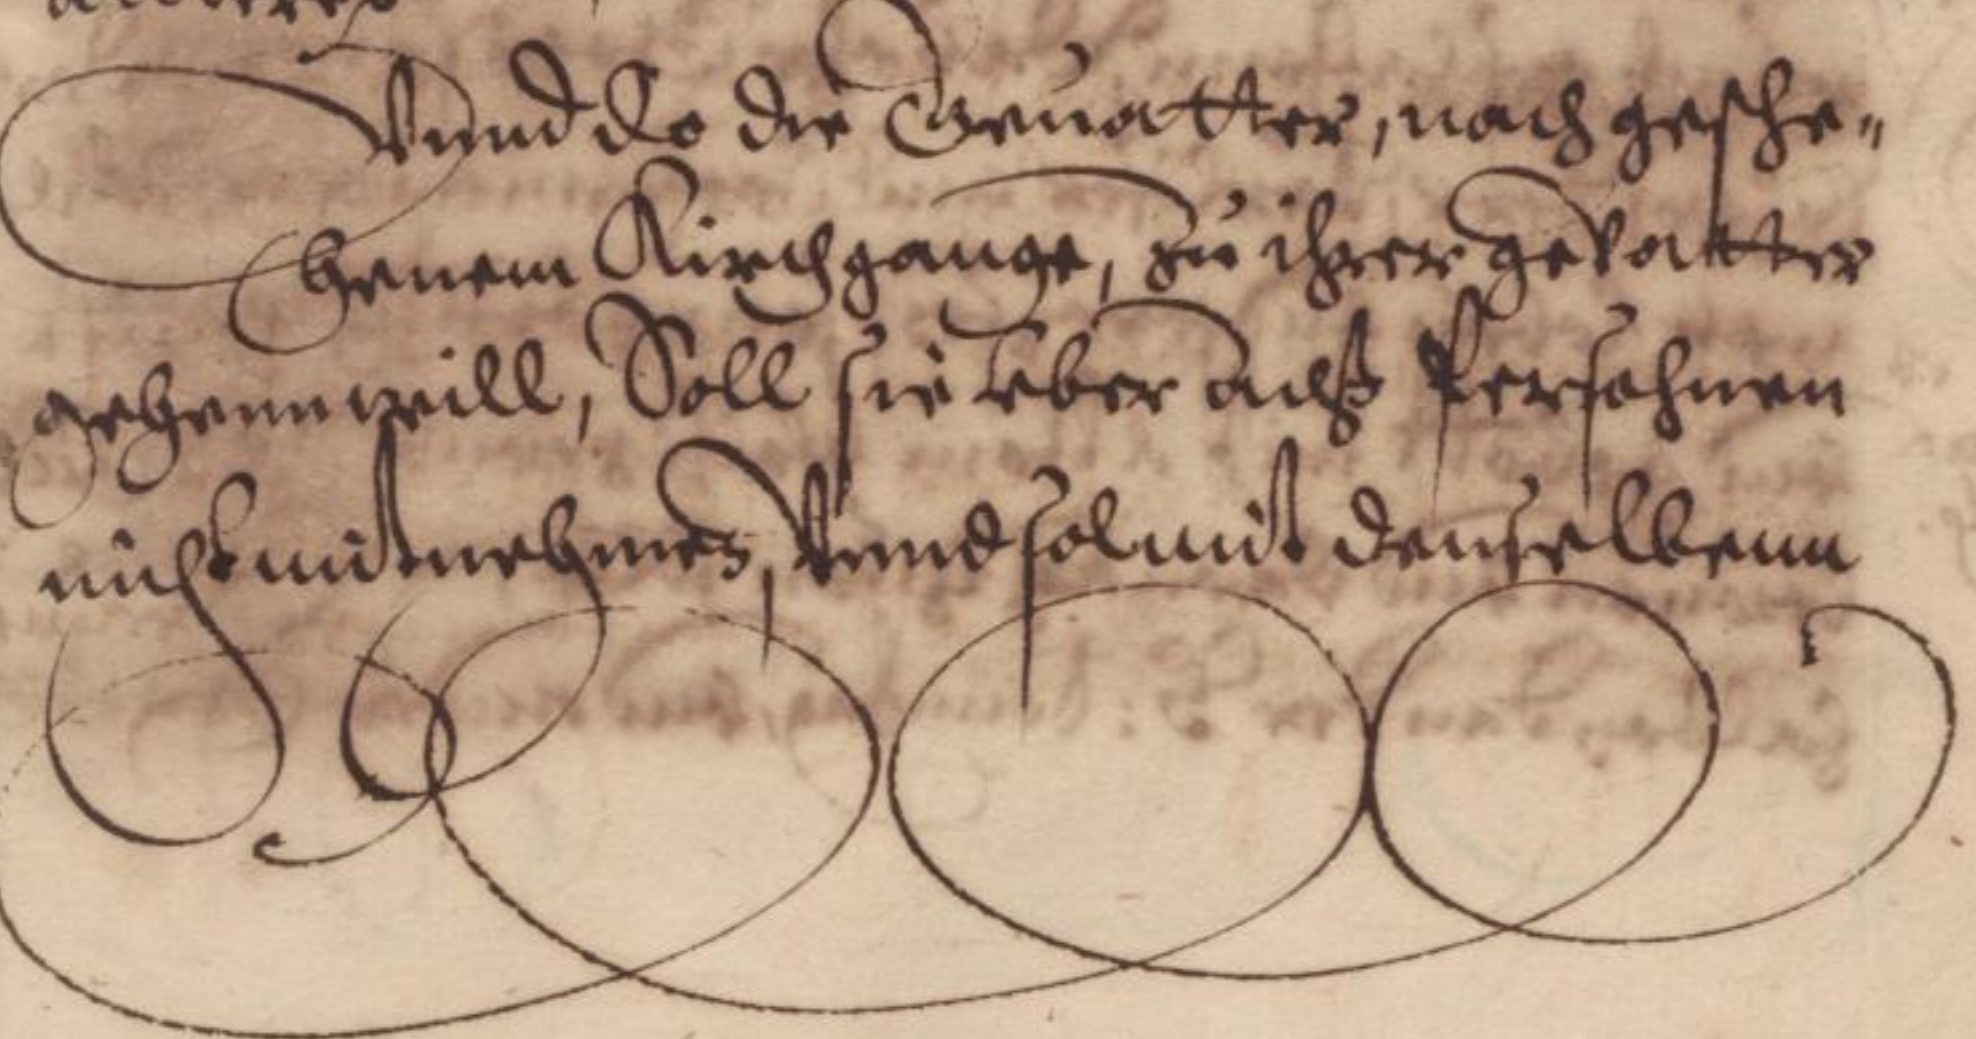 Vnnd do die Geuatter, nach gesche-
henem Kirchgange, zu ihrer gevatter
gehenn will, Soll sie vber acht Persohnen
nicht mitnehmen, Vnnd sol mit denselbenn